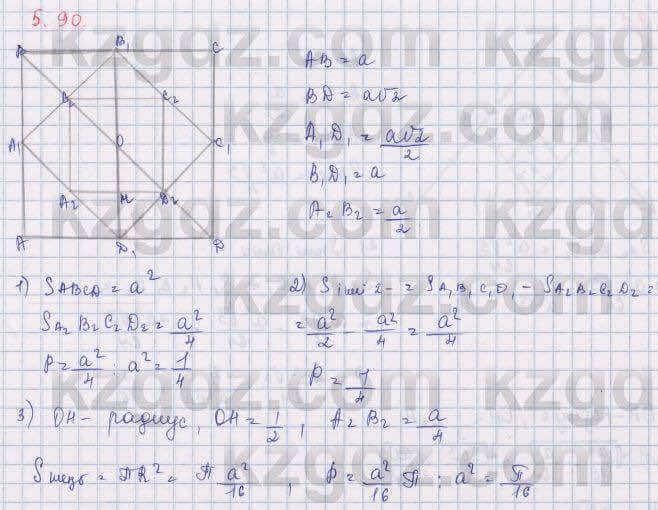 5.90
B B₁ C
B₂ C₂
A₁ O C₁
A₂ H D₂
A D₁ D
AB = a
BD = a√2
A₁D₁ = a√2/2
B₁D₁ = a
A₂B₂ = a/2
1) SABCD = a²
SA₂B₂C₂D₂ = a²/4
P = a²/4 : a² = 1/4
2) = SA₁B₁C₁D₁ - SA₂B₂C₂D₂ =
= a²/2 - a²/4 = a²/4
P = 1/4
3) OH - радиус, OH = 1/2, A₂B₂ = a/4
= πR² = π a²/16, P = a²/16 π : a² = π/16
kzgdz.com